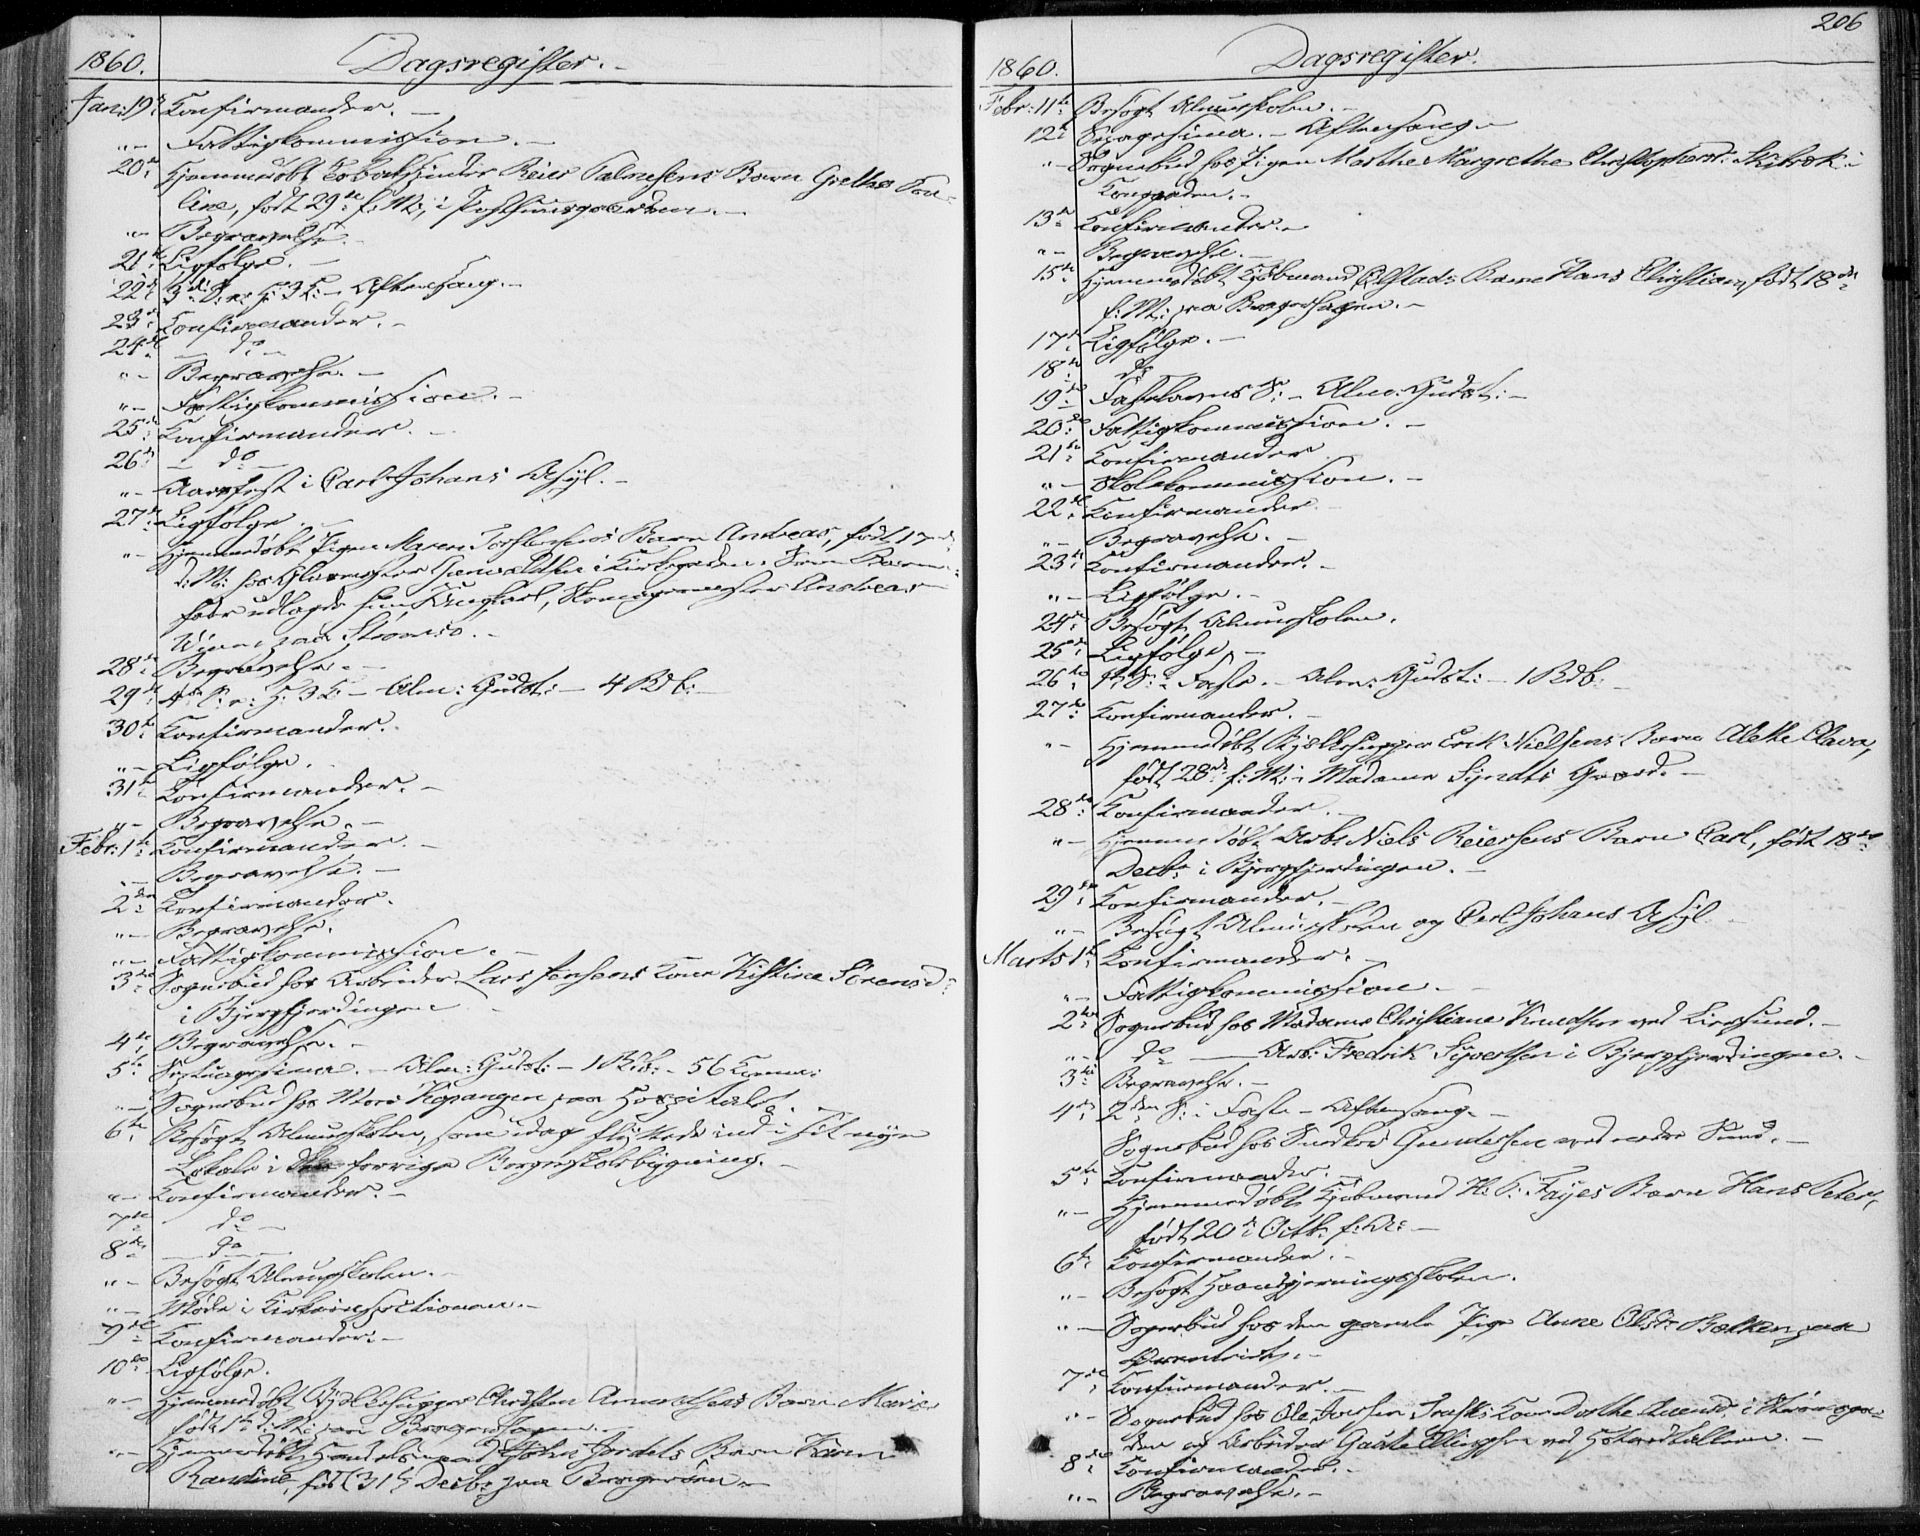 1860. Dagsregister.
Jan: 19de Konfirmander.
"- Fattigkommission.
20de Hjemmedøbt Barn Grethe
line, født 29de f: M:, i
"- Begravelse.
21de Ligfølge.
22de 3die S: e: H: 3 K: - Aftensang.
23de Konfirmander.
24de do
"- Begravelse.
"- Fattigkommission.
25de Konfirmander.
26de do
"- Aarsfest i Carl Johans Asyl.
27de Ligfølge.
"- Hjemmedøbt Pigen Maren Barn Andreas, født 17de
d: M: hos i Kirkegaden. Som Barne-
fader udlagde hun Ungkarl, Skomagermester Andreas
paa Strømsø.
28de Begravelse.
29de 4de S: e: H: 3 K: - Alm: Gudst: - 4 Bdb:
30te Konfirmander.
"- Ligfølge.
31te Konfirmander.
"- Begravelse.
Febr: 1te Konfirmander.
"- Begravelse.
2den Konfirmander.
"- Begravelse.
"- Fattigkommission.
3die Sognebud hos Arbeider Lars Jensens Kone Kistine Sörensd:
i Bjergfjerdingen
4de Begravelse.
5te Septuagesima. - Alm: Gudst: - 1 Bdb: - 56 Komm:
"- Sognebud hos Kopangen paa Hospitalet.
6te Besøgt Almueskolen, som idag flyttede ind i sit nye
Lokale i forrige Borgerskolebygning.
"- Konfirmander.
7de do
8de do
"- Besøgt Almueskolen.
"- Møde i Kirkeinspectionen.
9de Konfirmander.
10de Ligfølge.
"- Hjemmedøbt Christen Barn Marie
født 1te d: M: paa Bragerhagen.
"- Hjemmedøbt Handelsmand John Jordets Barn Karen
Randine, født 31te Decbr paa Bragerøen.
206
1860. Dagsregister.
Febr: 11te Besøgt Almueskolen.
12te Sexagesima. - Aftensang.
"- Sognebud hos Pigen Marthe Margrethe Christophersd: i
Konggaden.
13de Konfirmander.
"- Begravelse.
15de Hjemmedøbt Kjøbmand Barn Hans Christian, født 18de
f: M: paa Bragerhagen.
17de Ligfølge.
18de do
19de Fastelavns S: - Alm: Gudst:
20de Fattigkommission.
21de Konfirmander
"- Skolekommission.
22de Konfirmander
"- Begravelse.
23de Konfirmander.
"- Ligfølge.
24de Besøgt Almueskolen.
25de Ligfølge.
26de 1te S: i Faste. - Alm: Gudst: - 1 Bdb:
27de Konfirmander.
"- Hjemmedøbt Erik Nielsens Barn Alethe Olava,
født 28de f: M: i Madame Gaard.
28de Konfirmander.
"- Hjemmedøbt Arb: Niels Reiersens Barn Carl, født 18de
Decbr i Bjergfjerdingen.
29de Konfirmander.
"- Besøgt Almueskolen og Carl Johans Asyl
Marts 1te Konfirmander.
"- Fattigkommission.
2den Sognebud hos Madame Christiane Knudsen ved Liersund.
"- do - Arb: Fredrik Syvertsen i Bjergfjerdingen.
3die Begravelse.
4de 2den S: i Faste - Aftensang.
Sognebud hos Snedker Gundersen ved nedre Sund.
5te Konfirmander.
"- Hjemmedøbt Kjøbmand H: P: Fayes Barn Hans Peter,
født 20de Octb: f: A:
6te Konfirmander.
"- Besøgt Haandgjerningsskolen.
"- Sognebud hos den gamle Pige Anne Olsd: Bakken paa
7de Konfirmander.
"- Sognebud hos Ole Iversen Kone Dorthe i
den og Arbeider Gaute Ellingsen ved
8de Konfirmander.
"- Begravelse.